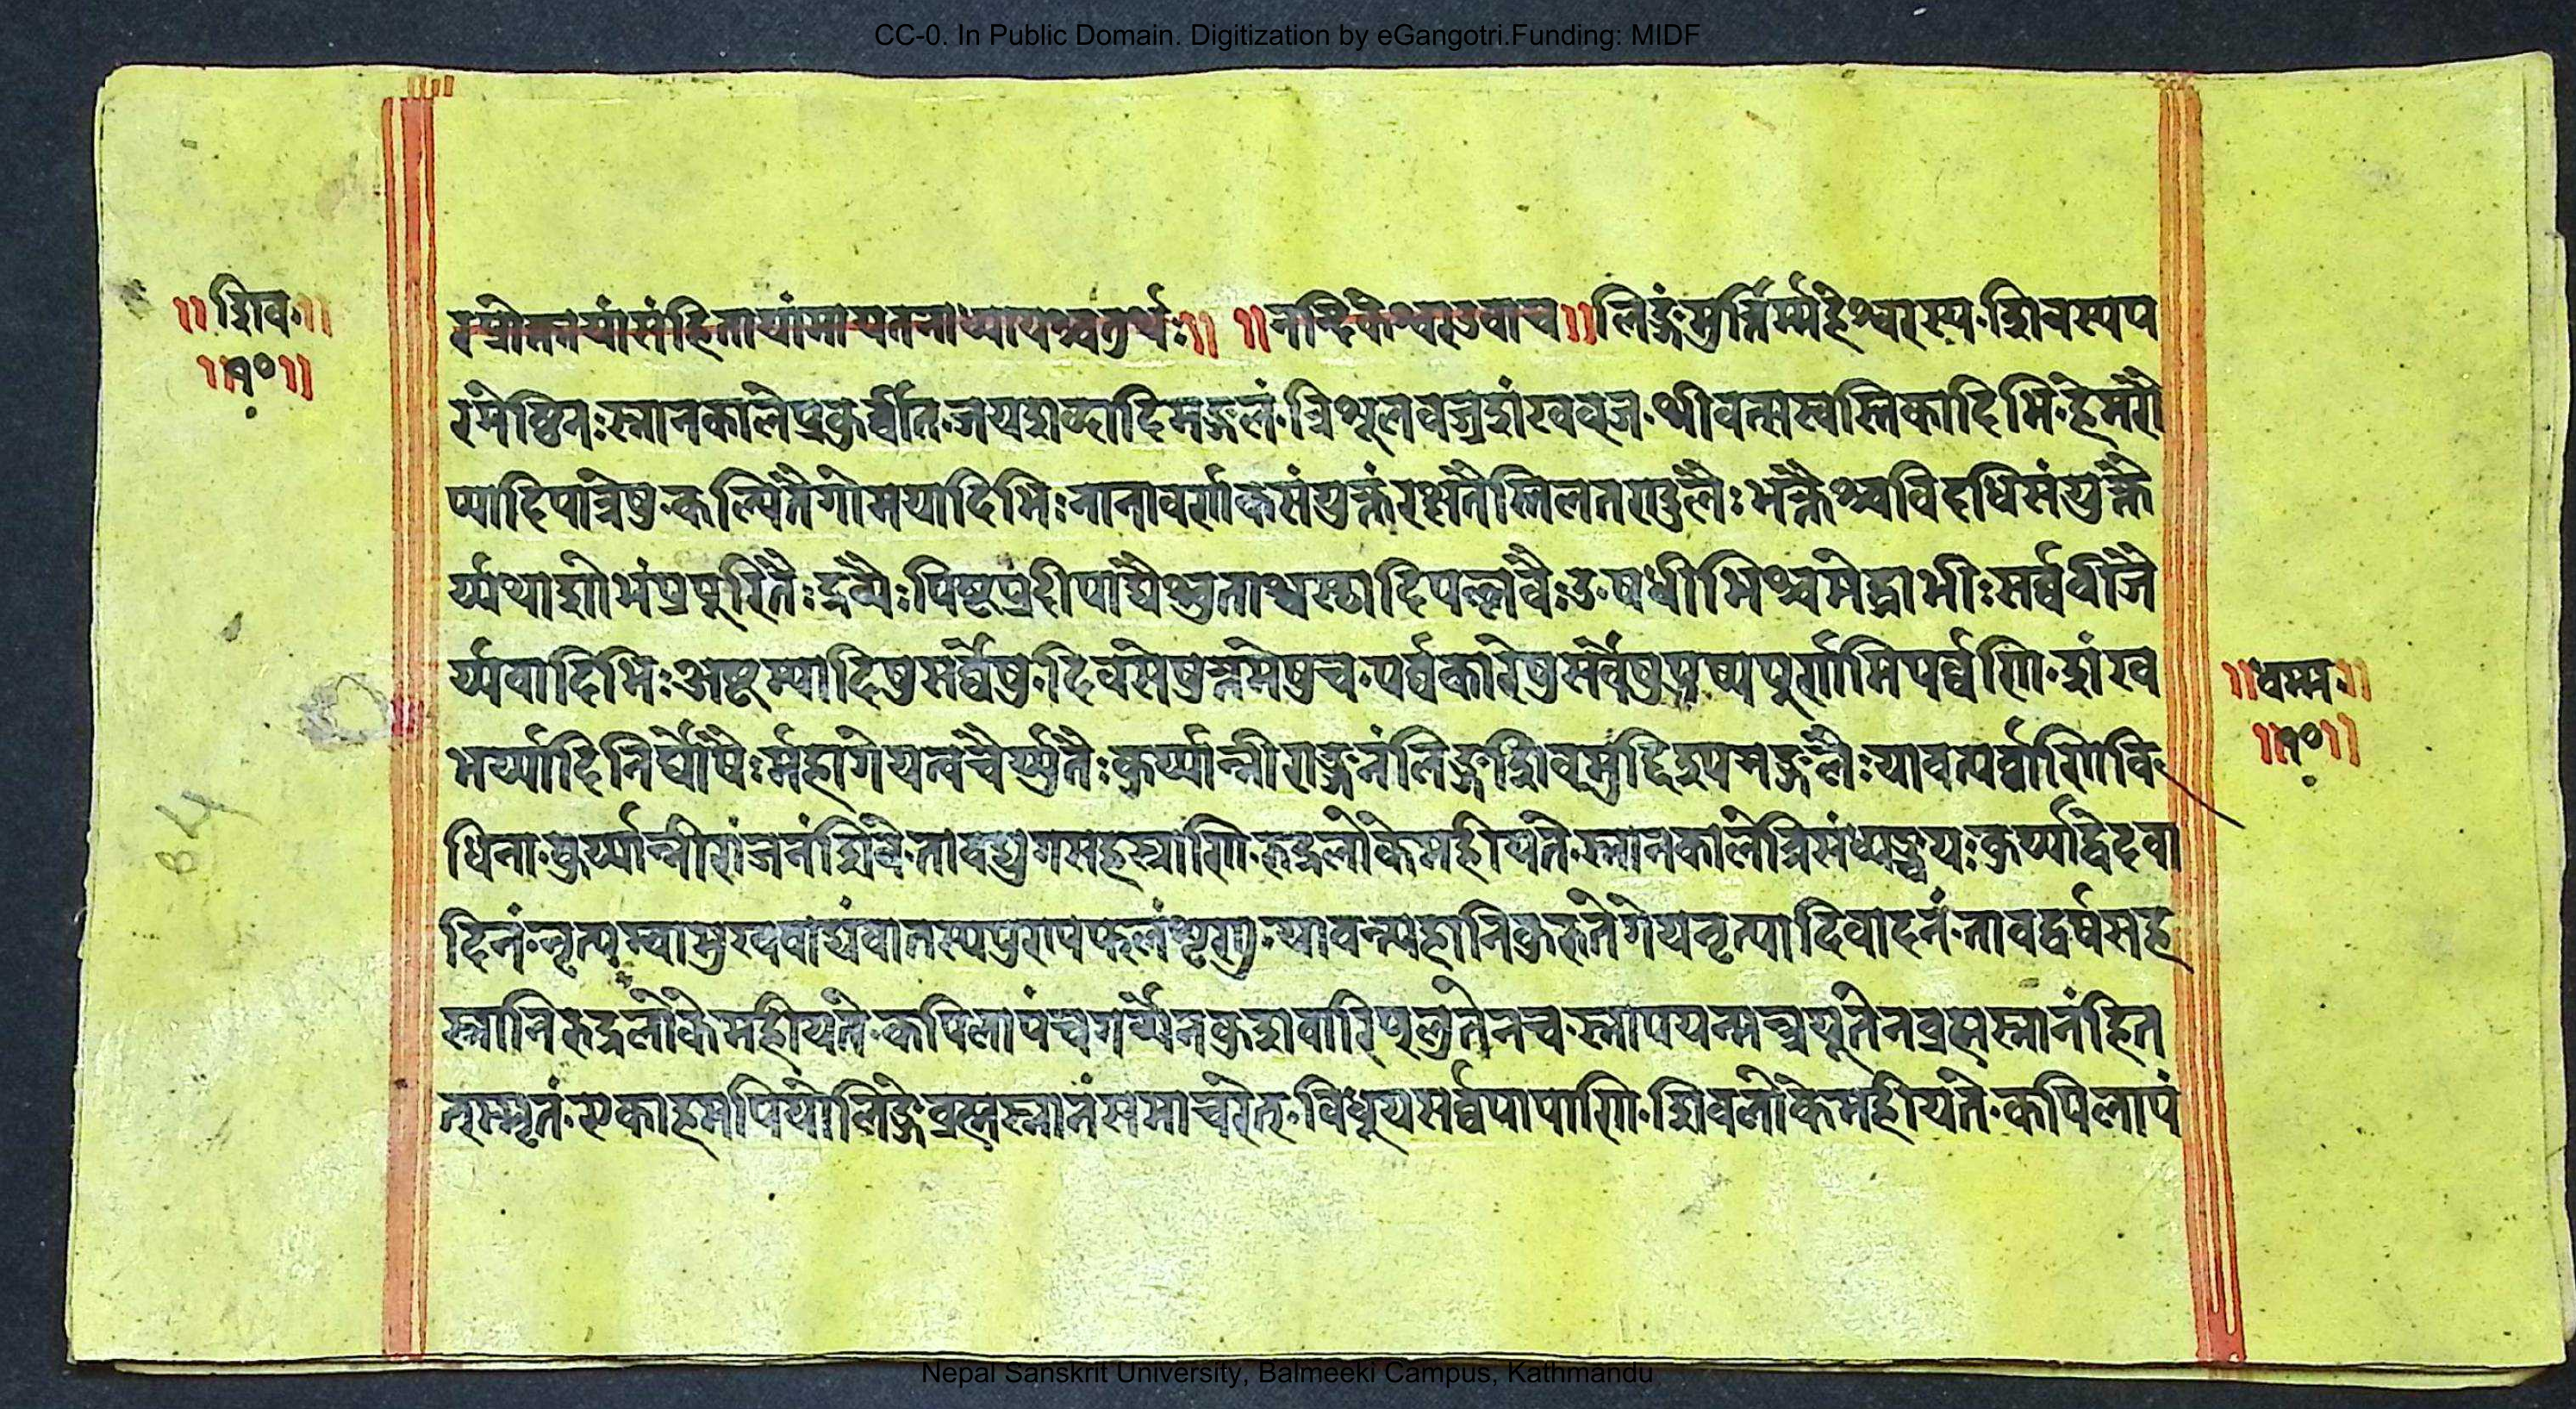 CC-0. In Public Domain. Digitization by eGangotri.Funding: MIDF
॥शिव॥
॥१०॥
रप्रोक्तायांसंहितायांमायतनाध्यायश्चतुर्थः॥ ॥नन्दिकेश्वरउवाच॥लिङ्गंमुर्त्तिर्म्महेश्वरस्य·शिवस्यप
रमेष्ठिनःस्नानकालेप्रकुर्व्वीत·जयशब्दादिमङ्गलं·त्रिशूलवज्रशंखव्जज·श्रीवत्सस्वस्तिकादिभि·हेमरौ
प्यादिपात्रेषु·कल्पितैगोमयादिभिःनानावर्णकसंयुक्तंरक्षतैस्तिलतण्डुलैःभक्तैश्चविदधिसंयुक्तै
र्य्यथाशोभंप्रपुरितैःद्रव्यैःपिष्टप्रदीपाद्यैश्चुताश्वस्छादिपल्लवैःउषधीभिश्चमेद्राभीःसर्व्ववीजै
र्य्यवादिभिःअष्टम्यादिषुसर्व्वेषु·दिवसेषुक्रमेषुच·पर्वकारेषुसर्वेषुपुष्यपुर्णामिपर्व्वणि·शंख
भर्य्यादिनिर्घोषैःर्महागेयत्वचैर्य्युतैःकुर्य्यान्नीराञ्जनंलिङ्गशिवमुद्दिश्यमङ्गलैःयावत्पर्वाणिवि
धिना·कुर्य्यान्नीरांजनंशिवे·तावद्युगसहस्राणि·रुद्रलोकेमहीयते·स्नानकालेत्रिसंध्यञ्चयःकुर्य्यद्विदवा
दिनं·नृत्यम्वामुखवाद्यंवातस्यपुण्यफलंशृणु·यावन्त्यहानिकुरुतेगेयनृत्यादिवादनं·तावद्वर्षसह
स्रानिरुद्रलोकेमहीयते·कपिलापंचगव्येनकुशवारिप्लुतेनच·स्नापयन्मच्चयूतेनब्रह्मस्नानंहित
त्स्मृतं·एकाहमपियोलिङ्गेब्रह्मस्नानंसमाचरेत्·विधूयसर्व्वपापाणि·शिवलोकेमहीयते·कपिलापं
॥धम्म॥
॥१०॥
84
Nepal Sanskrit University, Balmeeki Campus, Kathmandu